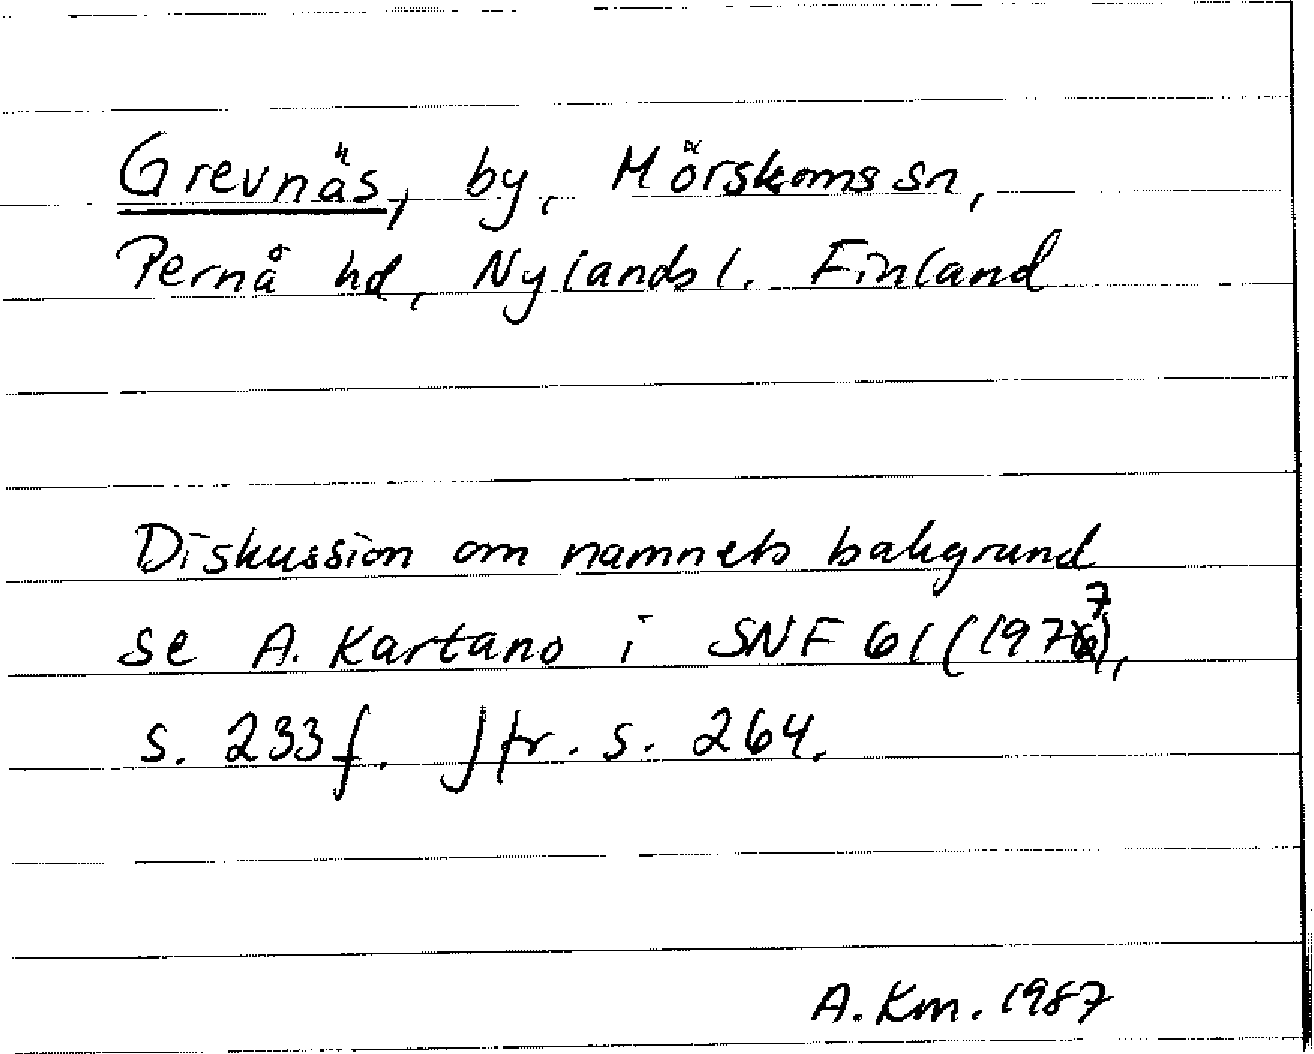 Grevnäs, by, Mörskoms sn,
Pernå hd, Nylands l. Finland
Diskussion om namnets bakgrund
se A. Kartano i SNF 61 (1977),
s. 233 f. Jfr. s. 264.
A. Km. 1987